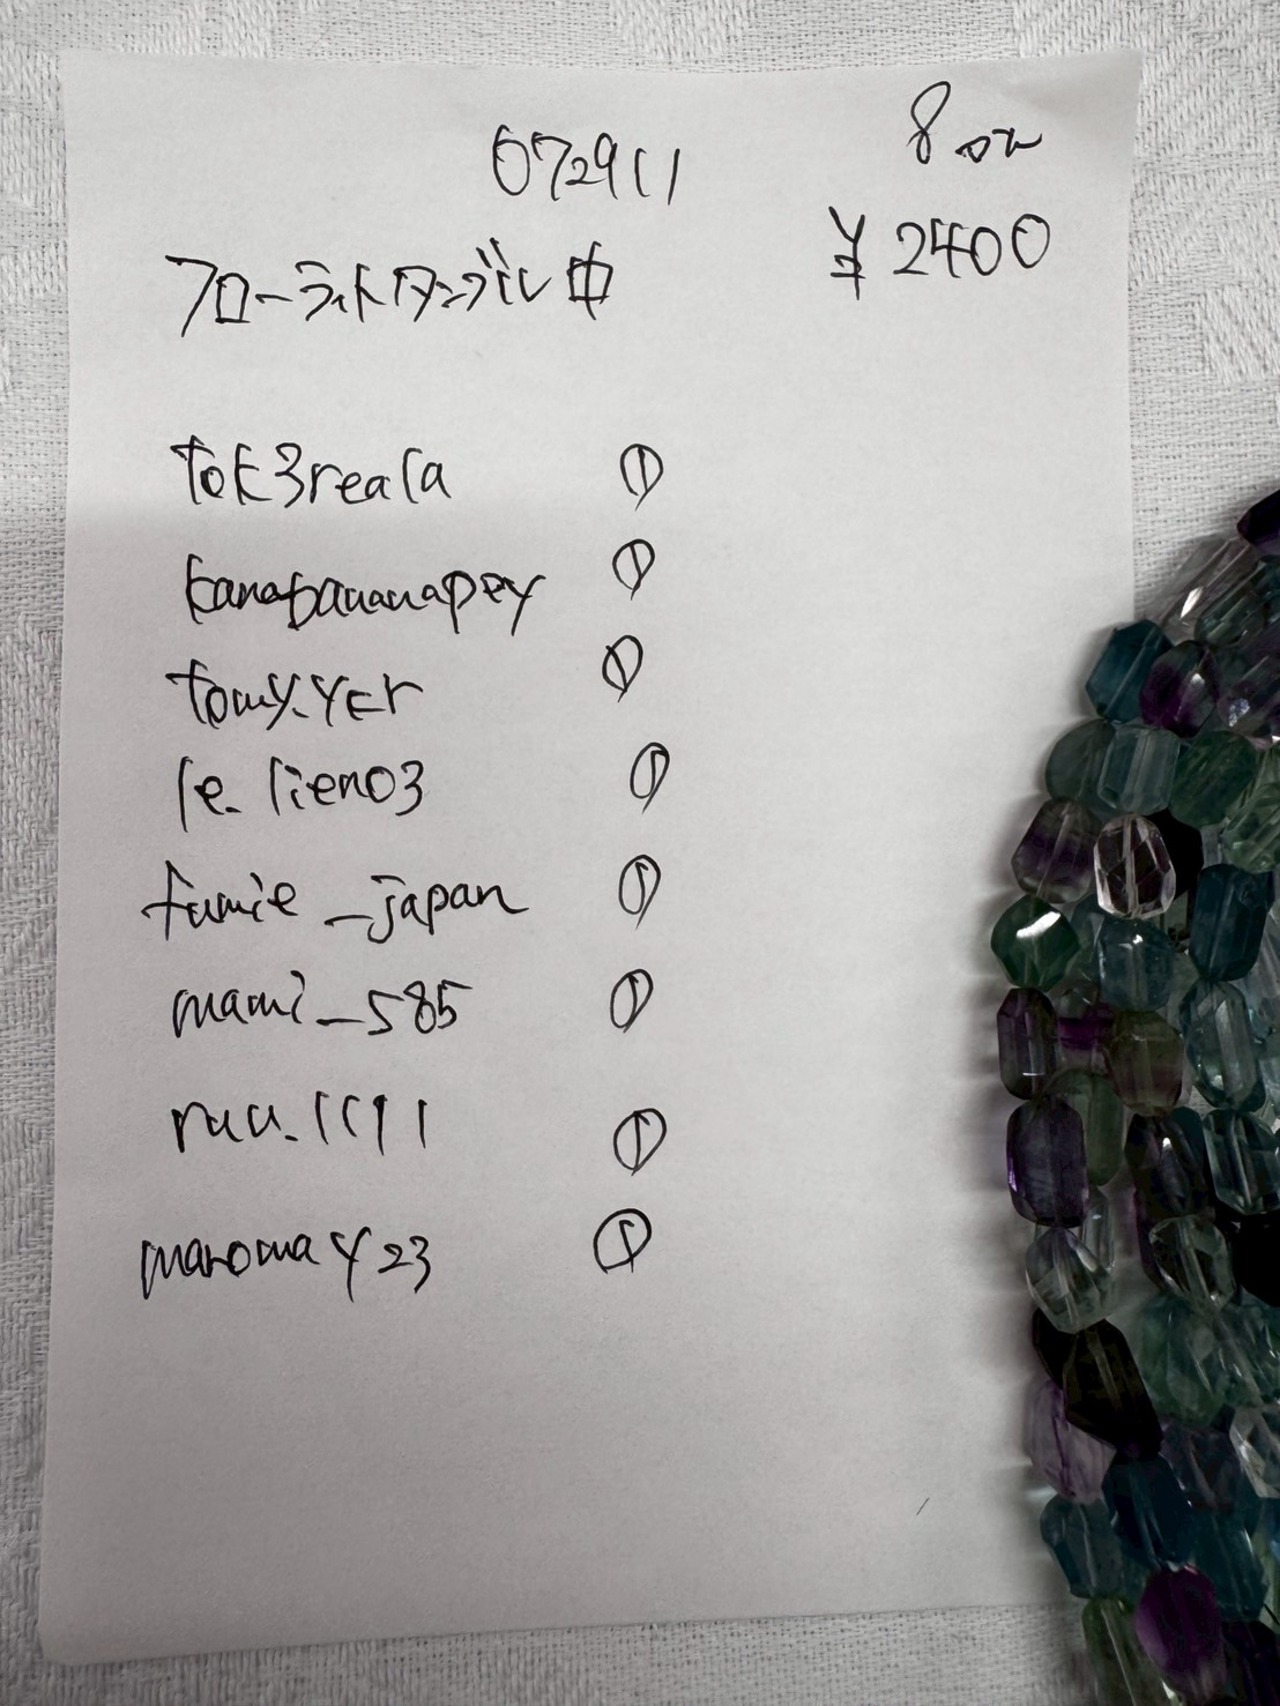 072911
8コ
¥2400
フローライトタンブル中
tok3reala ①
kanabananapey ①
tomy.ykr ①
le.lien03 ①
fumie_japan ①
mami_585 ①
ruu.1191 ①
maromay23 ①